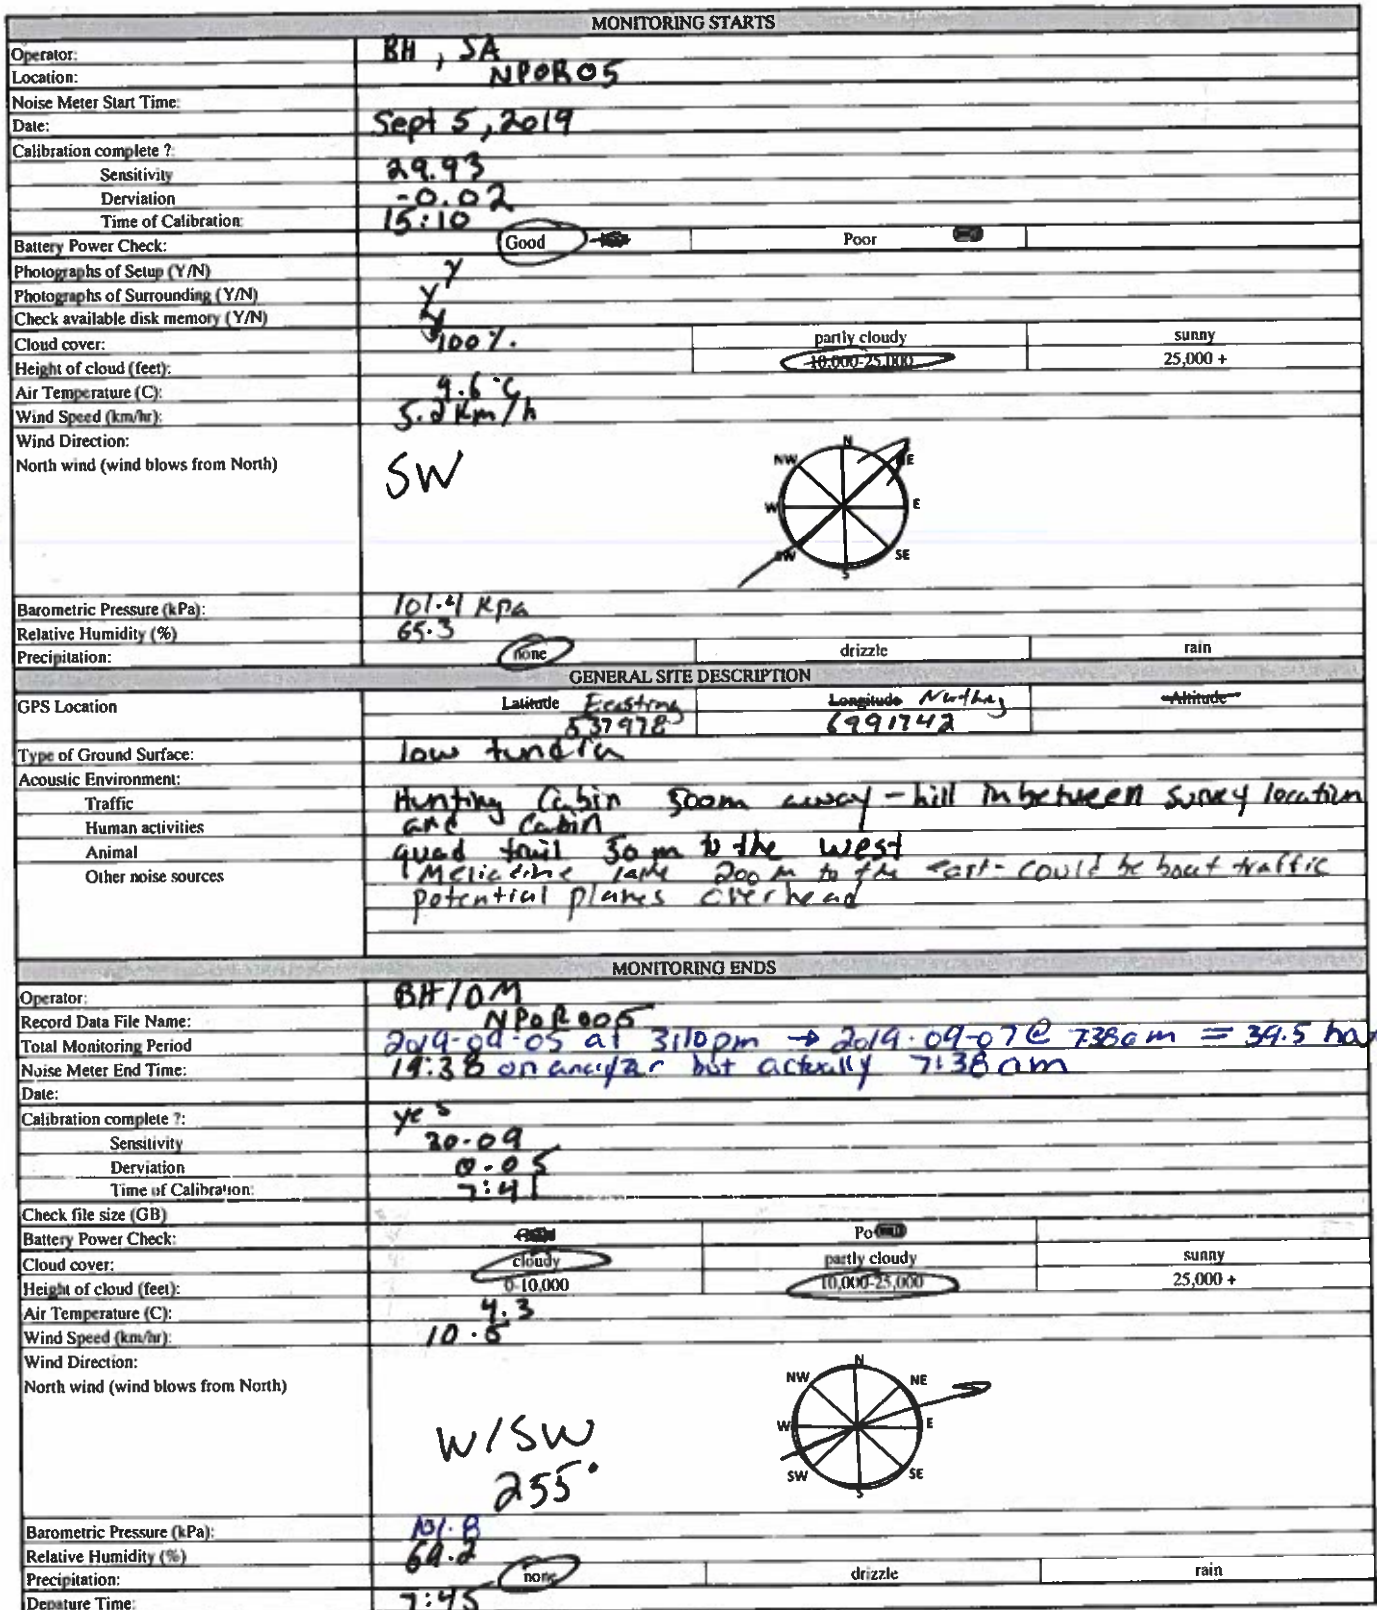 MONITORING STARTS
Operator: BH, SA
Location: NPOR05
Noise Meter Start Time:
Date: Sept 5, 2019
Calibration complete ?
Sensitivity 29.93
Derviation -0.02
Time of Calibration: 15:10
Battery Power Check: Good Poor
Photographs of Setup (Y/N) Y
Photographs of Surrounding (Y/N) Y
Check available disk memory (Y/N) Y
Cloud cover: 100%. partly cloudy sunny
Height of cloud (feet): 10,000-25,000 25,000 +
Air Temperature (C): 9.6°C
Wind Speed (km/hr): 5.2 Km/h
Wind Direction:
North wind (wind blows from North) SW
N
NW NE
W E
SW SE
S
Barometric Pressure (kPa): 101.4 Kpa
Relative Humidity (%) 65.3
Precipitation: none drizzle rain
GENERAL SITE DESCRIPTION
GPS Location Latitude Easting Longitude Northing Altitude
537978 6991742
Type of Ground Surface: low tundra
Acoustic Environment:
Traffic Hunting Cabin 500m away - hill in between survey location
Human activities and cabin
Animal quad trail 50 m to the west
Other noise sources Meliadine lake 200 m to the east - could be boat traffic
potential planes overhead
MONITORING ENDS
Operator: BH/OM
Record Data File Name: NPOR005
Total Monitoring Period 2019-09-05 at 3:10pm → 2019-09-07 @ 738am = 39.5 ho
Noise Meter End Time: 19:38 on but actually 7:38 am
Date:
Calibration complete ?: yes
Sensitivity 30.09
Derviation 0.05
Time of Calibration: 7:41
Check file size (GB)
Battery Power Check: Po
Cloud cover: cloudy partly cloudy sunny
Height of cloud (feet): 0-10,000 10,000-25,000 25,000 +
Air Temperature (C): 4.3
Wind Speed (km/hr): 10.5
Wind Direction:
North wind (wind blows from North)
N
NW NE
W E
SW SE
S
W/SW
255°
Barometric Pressure (kPa): 101.8
Relative Humidity (%) 69.2
Precipitation: none drizzle rain
Depature Time: 7:45